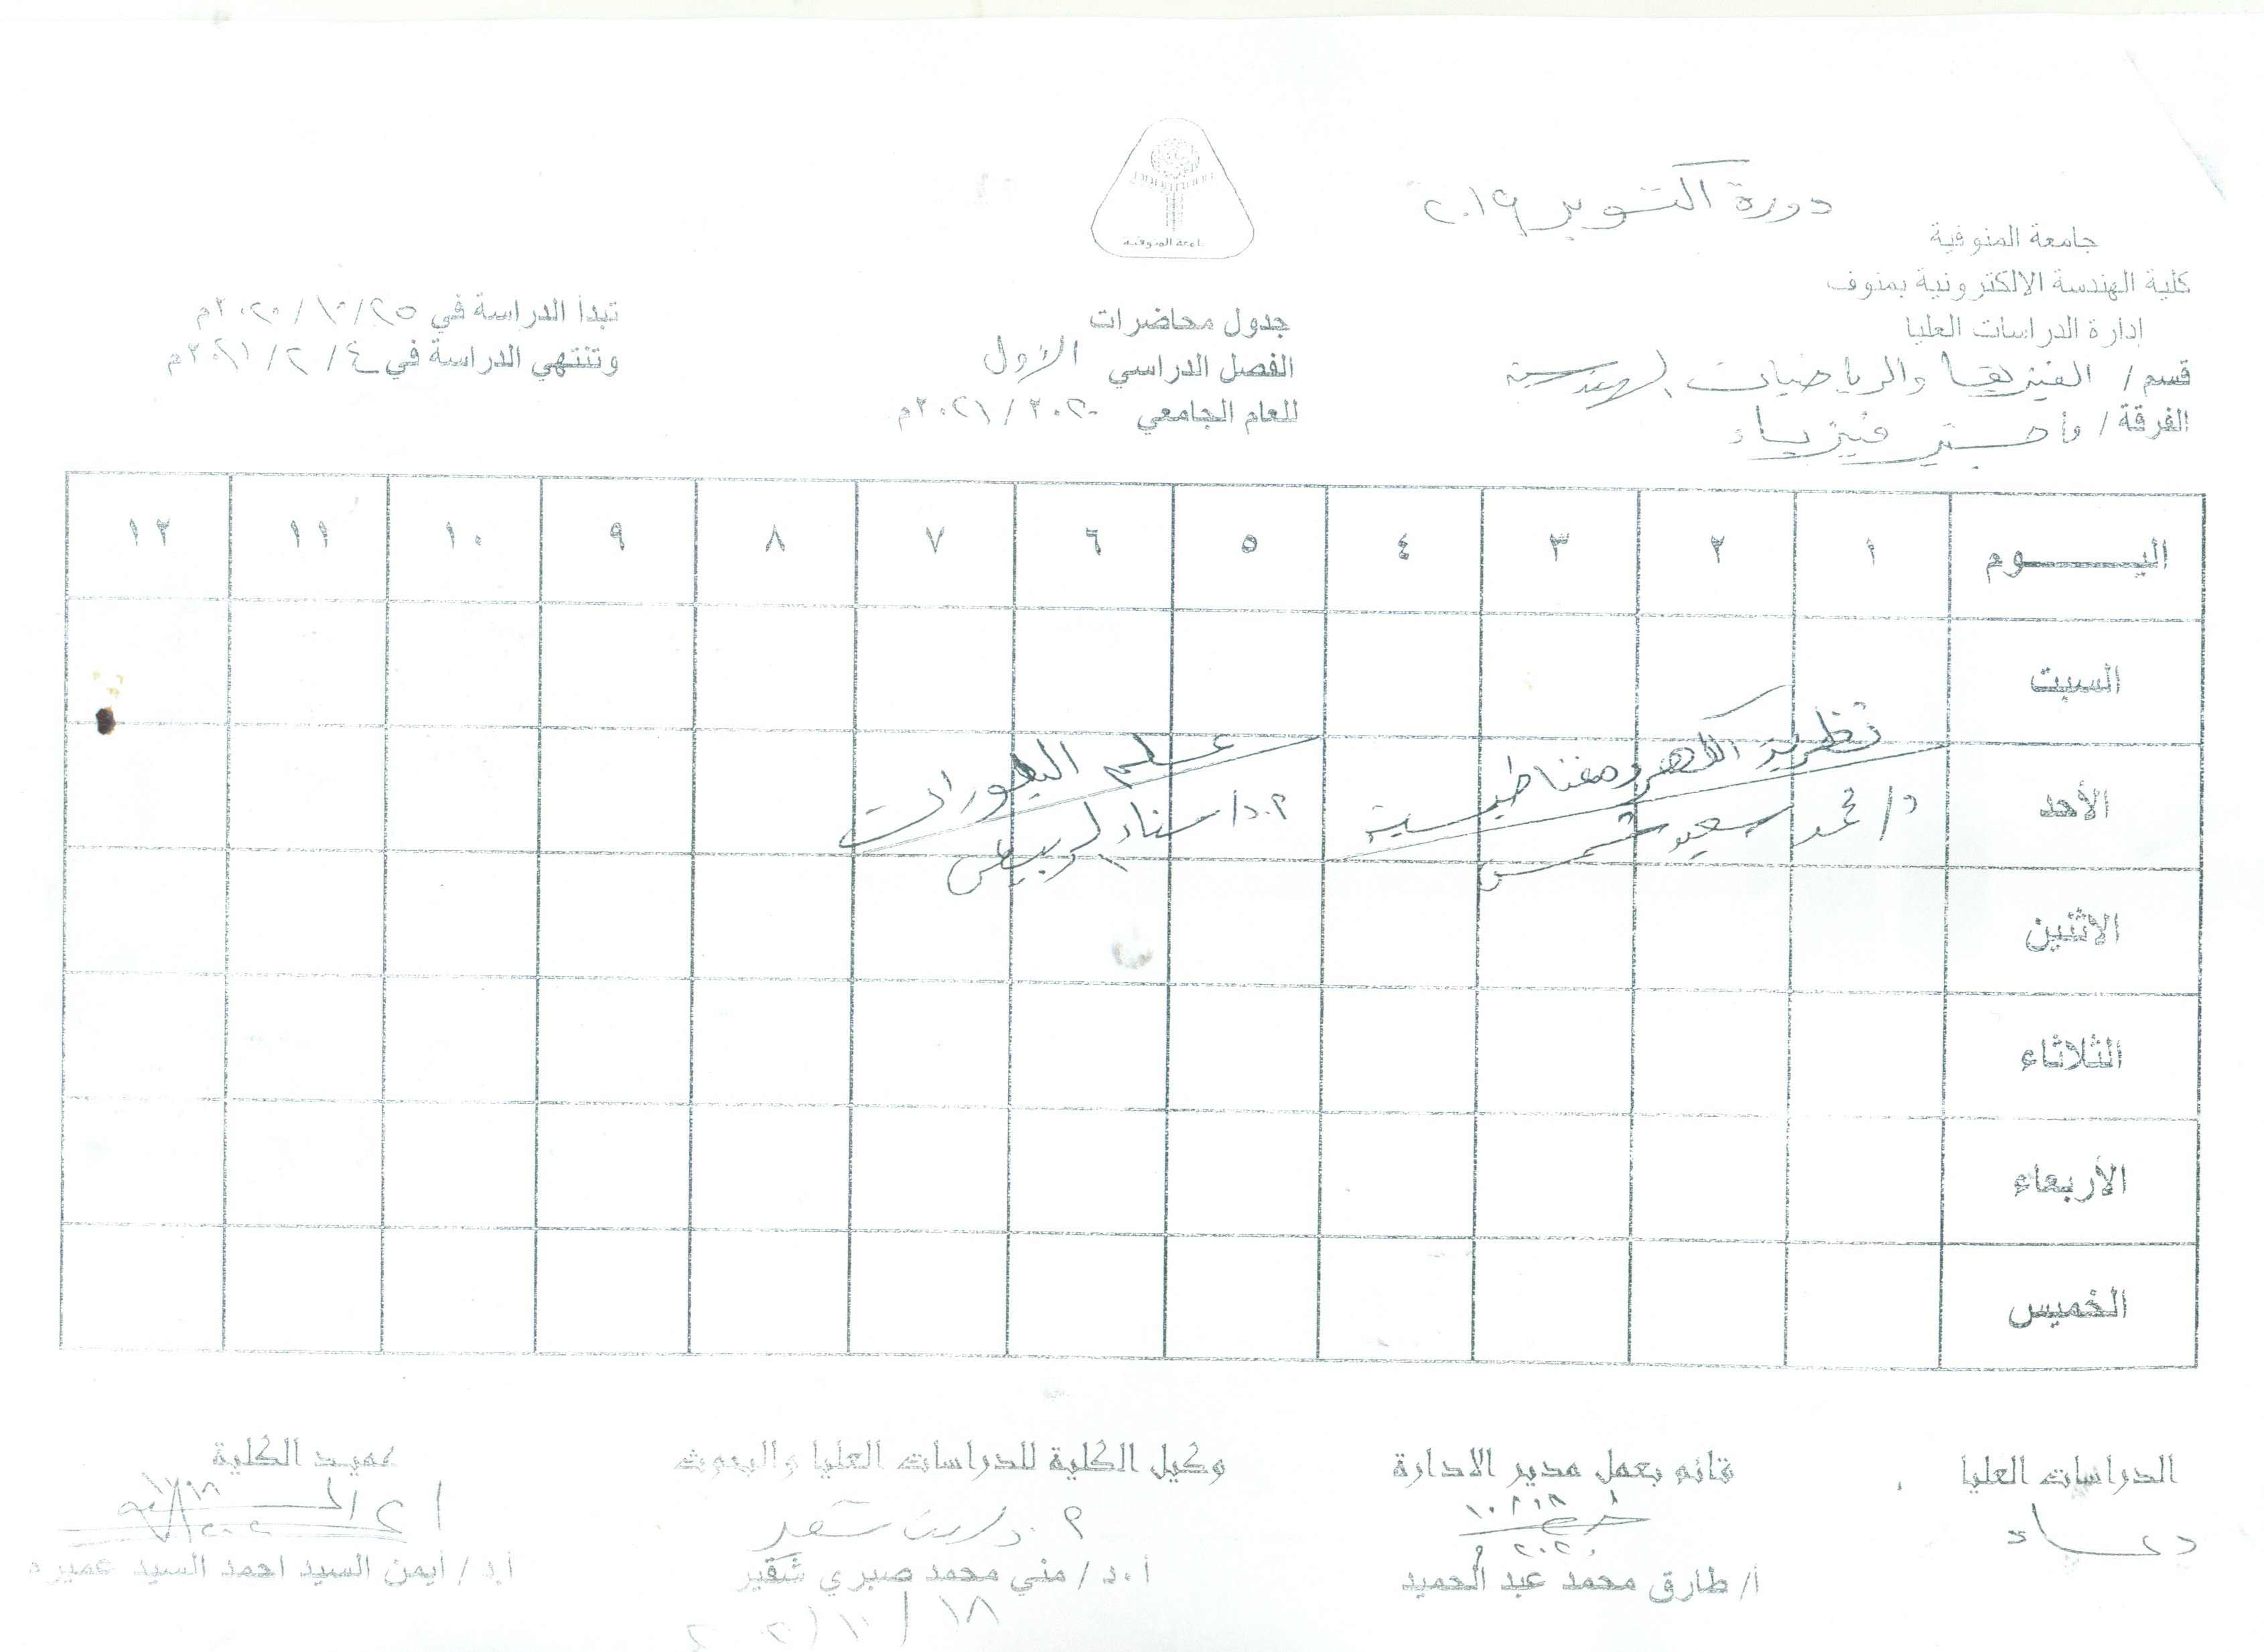 دورة اكتوبر ٢٠١٩
جامعة المنوفية
جامعة المنوفية
كلية الهندسة الالكترونية بمنوف
إدارة الدراسات العليا
قسم / الفيزيقا والرياضيات الهندسية
الفرقة / ماجستير فيزياء
جدول محاضرات
الفصل الدراسي الاول
للعام الجامعي ٢٠٢٠/٢٠٢١م
تبدأ الدراسة في ٢٥/١٠/٢٠٢٠م
وتنتهي الدراسة في ٤/٢/٢٠٢١م
اليـــــوم ١ ٢ ٣ ٤ ٥ ٦ ٧ ٨ ٩ ١٠ ١١ ١٢
السبت
الأحد
نظرية الكهرومغناطيسية
د/ محمد سعيد شمس
علم البلورات
أ.د/ سناء
الاثنين
الثلاثاء
الأربعاء
الخميس
الدراسات العليا
دعاء
قائم بعمل مدير الادارة
٢٠٢٠
أ/ طارق محمد عبد الحميد
وكيل الكلية للدراسات العليا والبحوث
أ.د/ مني محمد صبري شقير
١٨/١٠/٢٠٢٠
عميد الكلية
أ.د / أيمن السيد احمد السيد عميره